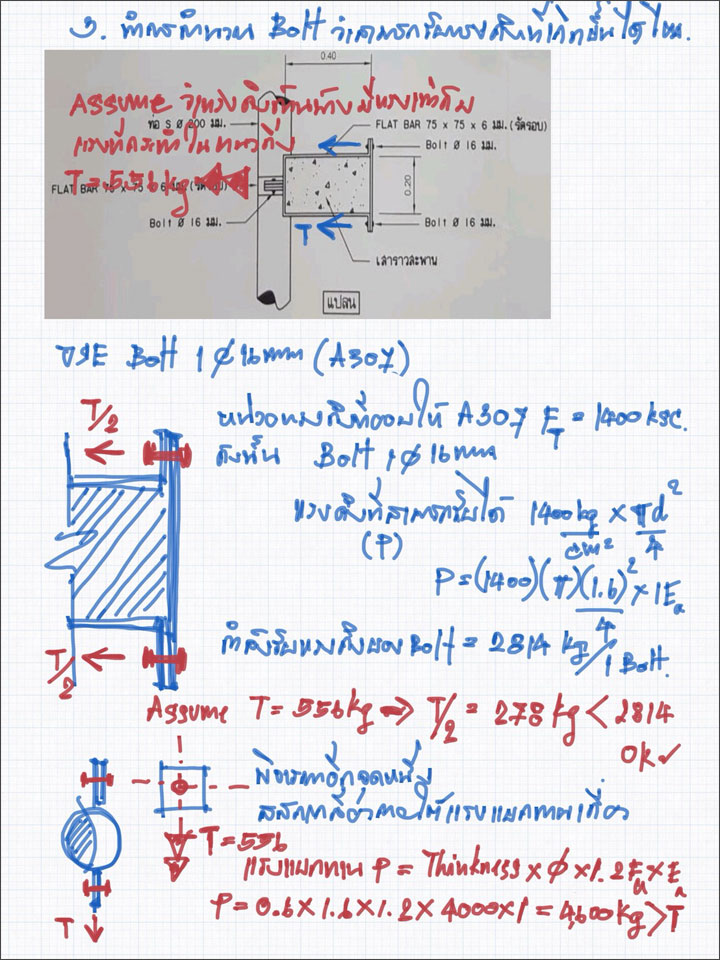 3. ทำการคำนวณ Bolt ว่าสามารถรับแรงดึงที่เกิดขึ้นได้ไหม.
0.40
Assume ว่าแรงดึงด้านข้าง มีแรงเท่ากับ
ท่อ S Ø 200 มม.
FLAT BAR 75 x 75 x 6 มม.(รัดรอบ)
แรงที่กระทำในแนวดิ่ง
Bolt Ø 16 มม.
T = 556 kg
FLAT BAR 75 x 75 x 6 มม.(รัดรอบ)
0.20
Bolt Ø 16 มม.
T
Bolt Ø 16 มม.
เสาราวสะพาน
แปลน
Bolt 1 Ø 16 mm (A307)
T/2
หน่วยแรงดึงที่ยอมให้ A307 F_T = 1400 ksc.
ดังนั้น Bolt 1 Ø 16 mm
แรงดึงที่สามารถรับได้ 1400 kg/cm² x πd²/4
(P)
P = (1400)(π)(1.6)²/4 x 1 Ea
กำลังรับแรงดึงของ Bolt = 2814 kg/1 Bolt.
T/2
Assume T = 556 kg → T/2 = 278 kg < 2814
OK ✓
พิจารณาอีกจุดหนึ่ง
T = 556
แรงแบกทาน P = Thinkness x Ø x 1.2 Fu x Ea
P = 0.6 x 1.6 x 1.2 x 4000 x 1 = 4,600 kg > T
T